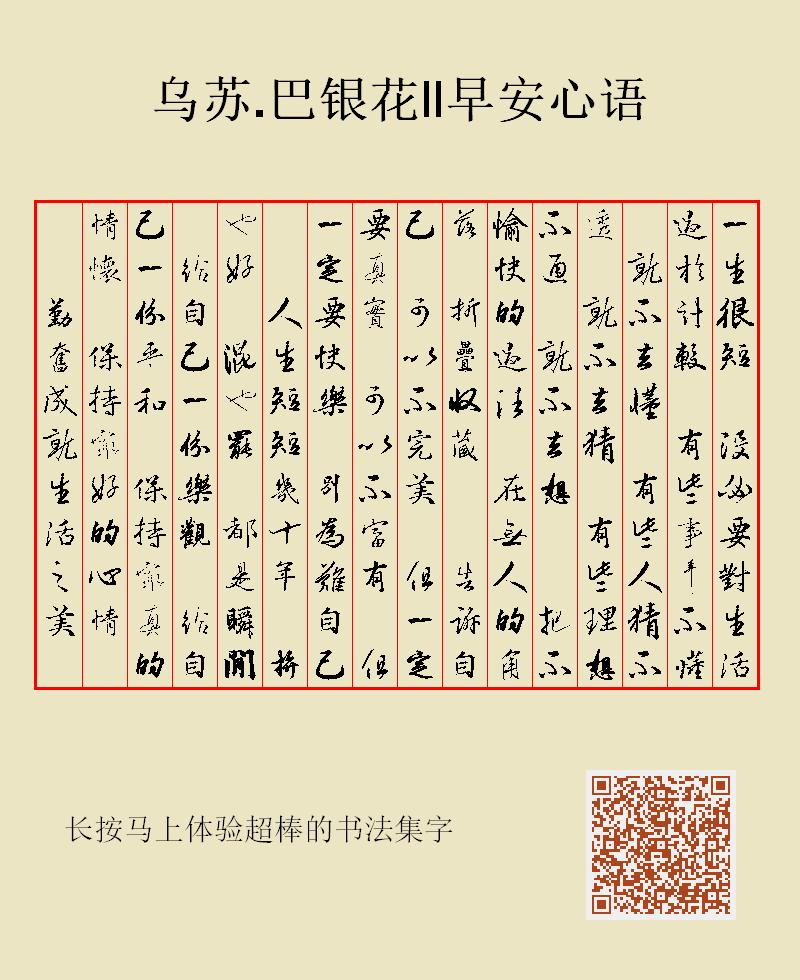 乌苏.巴银花II早安心语
一生很短 沒必要對生活
過於計較 有些事弄不懂
就不去懂 有些人猜不
透 就不去猜 有些理想
不通 就不去想 把不
愉快的過往 在無人的角
落 折疊收藏 告訴自
己 可以不完美 但一定
要真實 可以不富有 但
一定要快樂 別為難自己
人生短短幾十年 拚
也好 混也罷 都是瞬間
給自己一份樂觀 給自
己一份平和 保持真的
情懷 保持好的心情
勤奮成就生活之美
长按马上体验超棒的书法集字